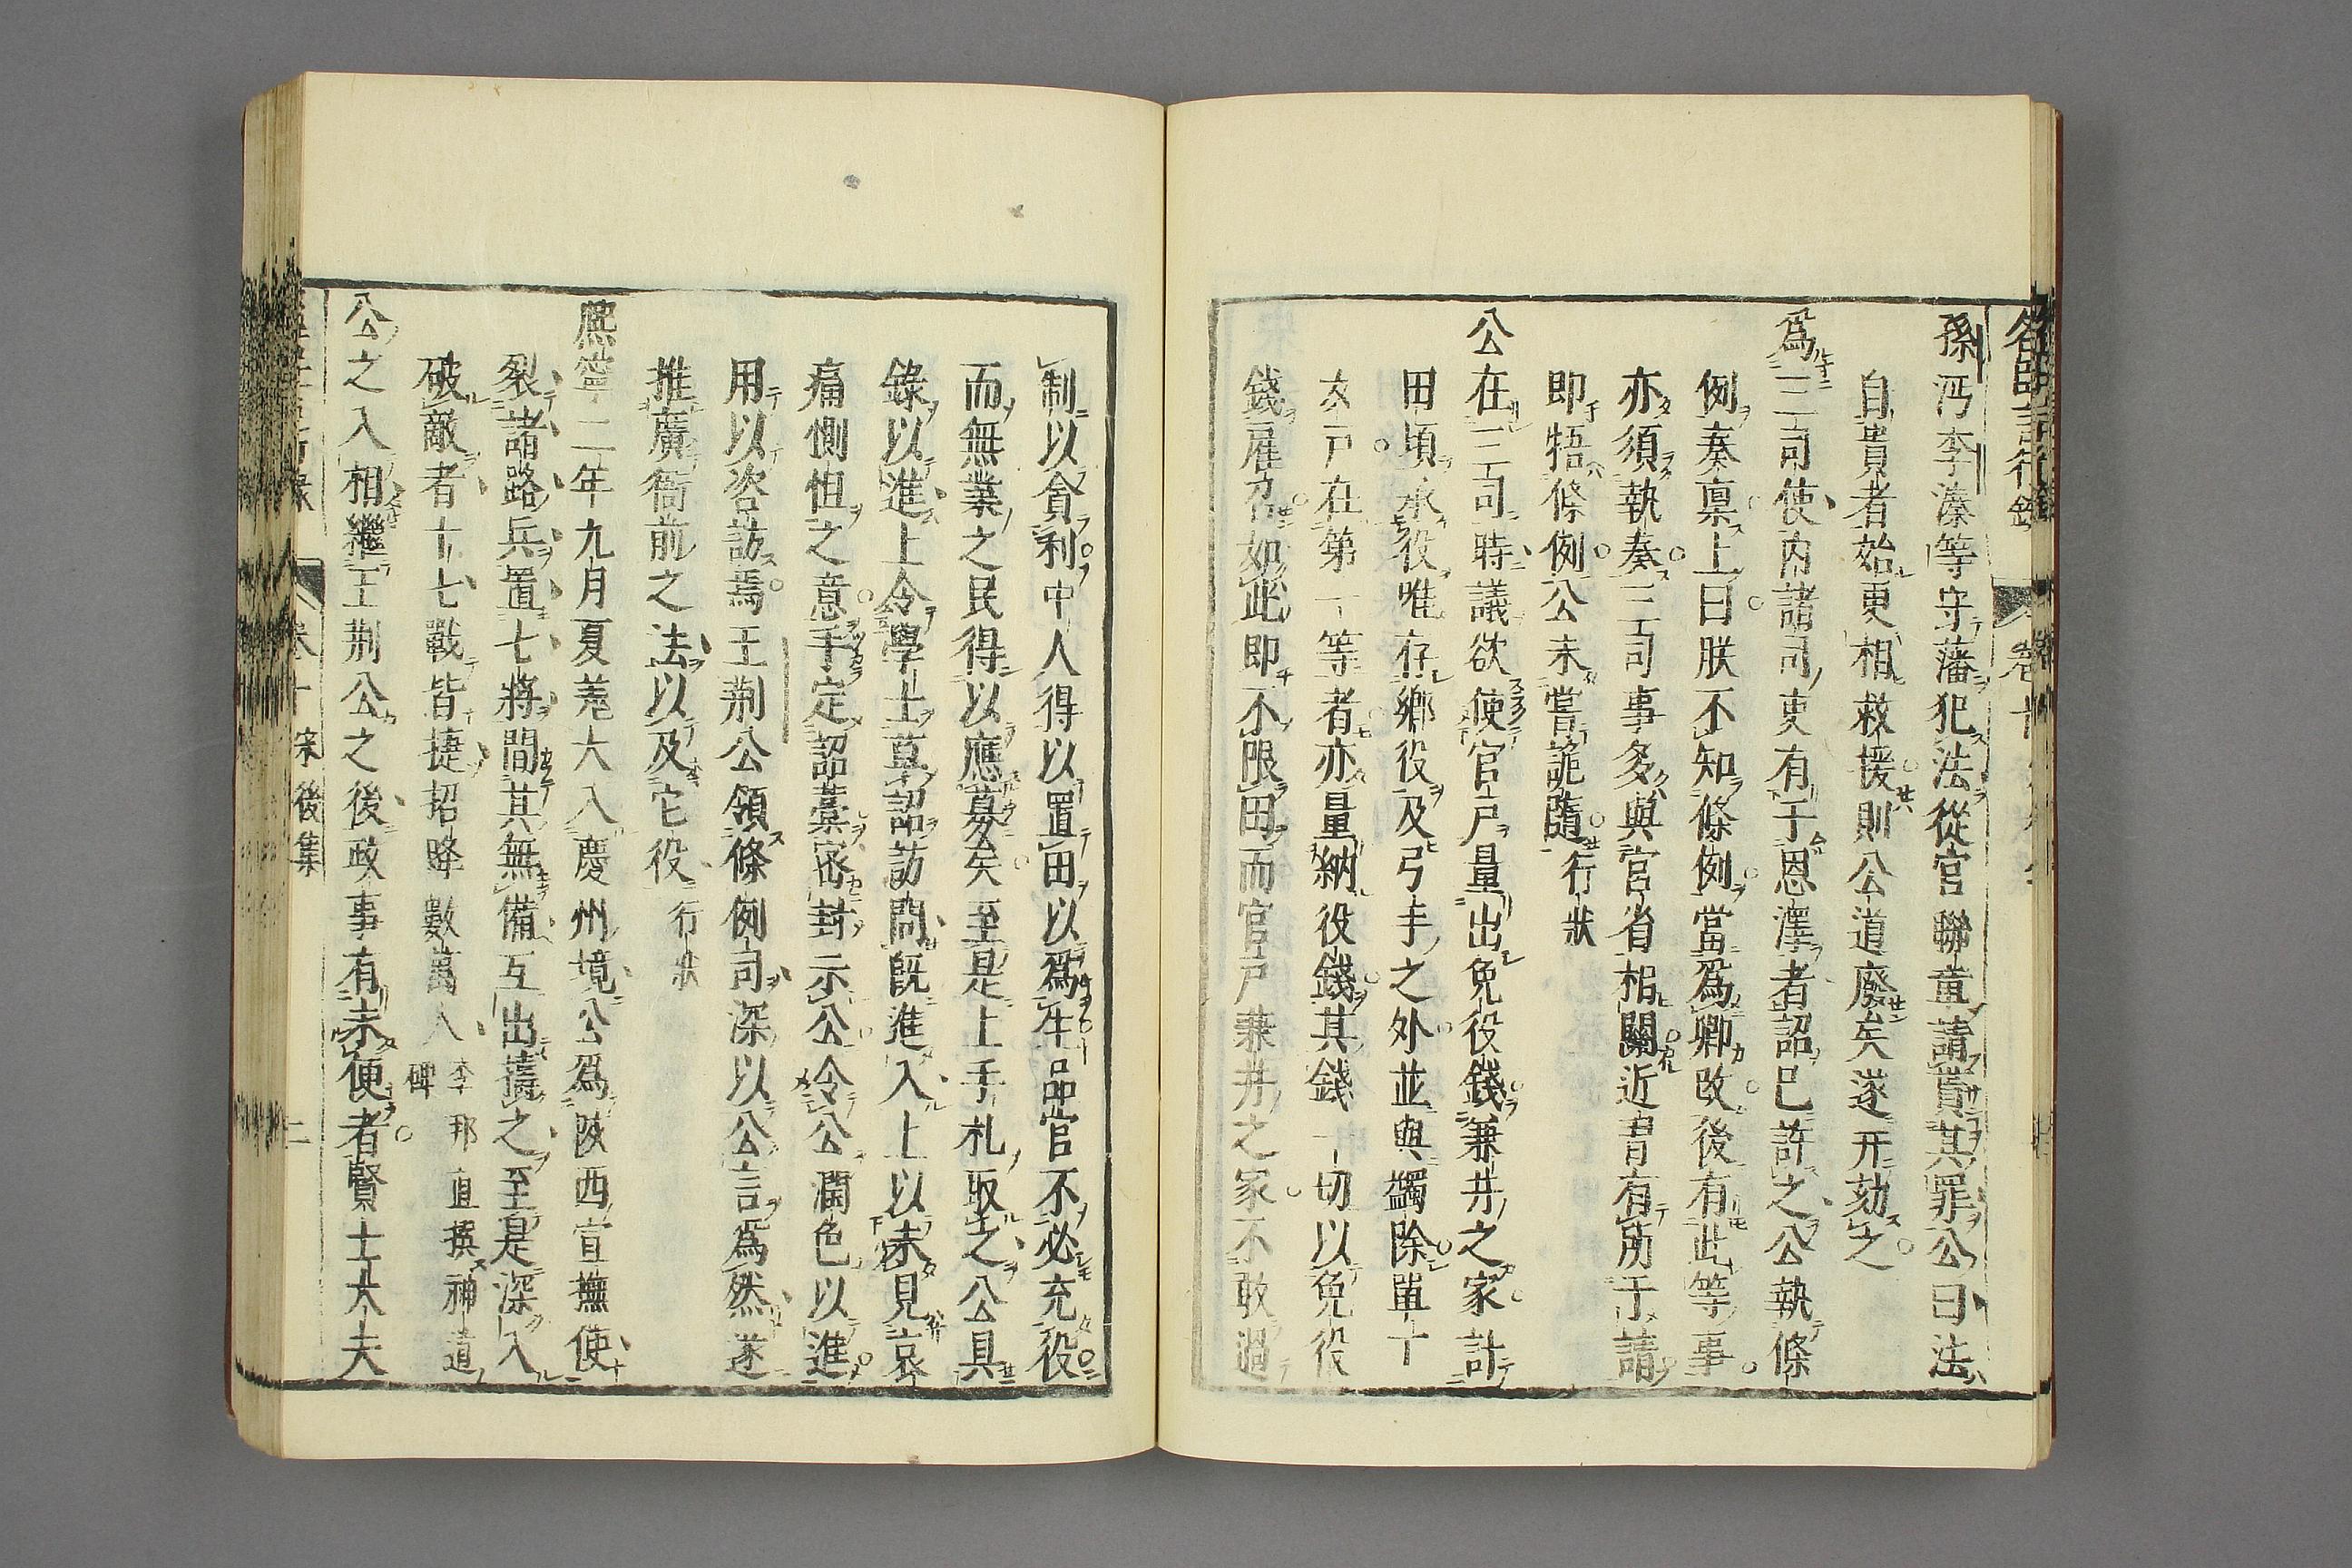 孫沔李溱等守藩犯法從官聯章請貰其罪公曰法
自貴者始更相救援則公道廢矣遂幷劾之
爲三司使內諸司吏有干恩澤者詔已許之公執條
例奏稟上曰朕不知條例當爲卿改後有此等事
亦須執奏三司事多與宮省相關近習有所干請
卽牾條例公未嘗詭隨行狀
公在三司時議欲使官戶量出免役錢兼幷之家計
田頃承役唯存鄉役及弓手之外並與蠲除單丁
女戶在第一等者亦量納役錢其錢一切以免役
錢雇募如此卽不限田而官戶兼幷之家不敢過
制以貪利中人得以置田以爲生品官不必充役
而無業之民得以應募矣至是上手札取之公具
錄以進上令學士草詔訪問旣進入上以未見哀
痛惻怛之意手定詔藁密封示公令公潤色以進
用以咨訪焉王荆公領條例司深以公言爲然遂
推廣衙前之法以及它役行狀
熈寧二年九月夏羗大入慶州境公爲陝西宣撫使
裂諸路兵置七將間其無備互出擣之至是深入
破敵者十七戰皆捷招降數萬人李邦直撰神道
碑
公之入相繼王荆公之後政事有未便者賢士大夫
卷十
宋後集
二